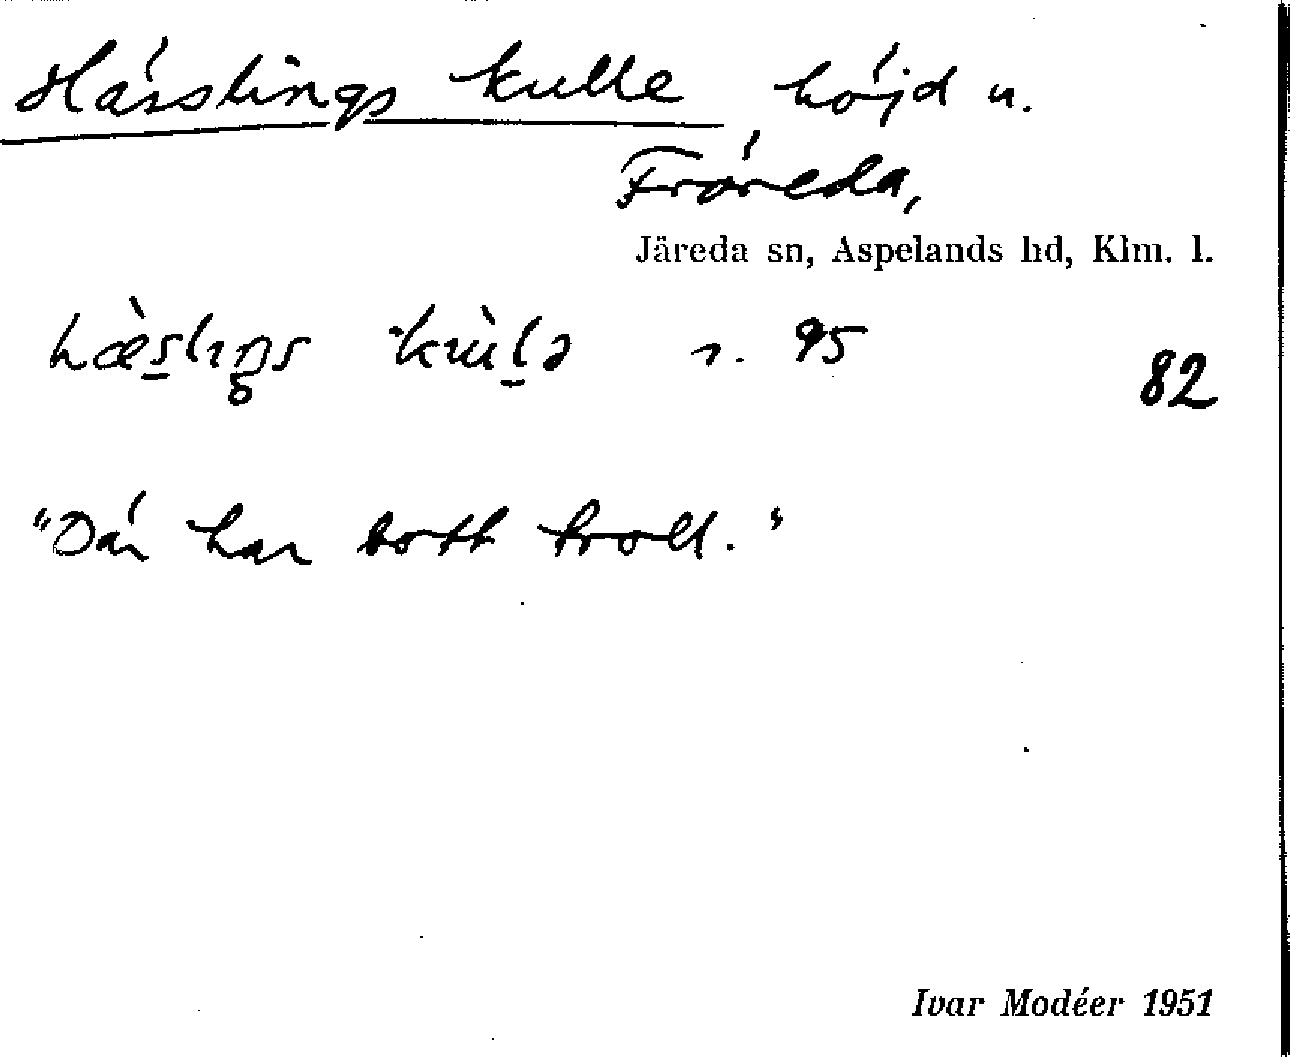 Hässlings kulle, höjd u.
Fröreda,
Järeda sn, Aspelands hd, Klm. l.
hæ̀slıŋs kùlə r. 95
82
"Där har bott troll."
Ivar Modéer 1951